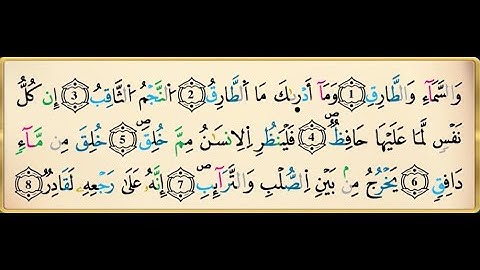 وَالسَّمَآءِ وَالطَّارِقِ ۝1 وَمَآ أَدْرٜىٰكَ مَا اَ۬لطَّارِقُ ۝2 اَ۬لنَّجْمُ اُ۬لثَّاقِبُ ۝3 إِن كُلُّ
نَفْسٖ لَّمَا عَلَيْهَا حَافِظٞۖ ۝4 فَلْيَنظُرِ اِ۬لِانسَٰنُ مِمَّ خُلِقَۖ ۝5 خُلِقَ مِن مَّآءٖ
دَافِقٖ ۝6 يَخْرُجُ مِنۢ بَيْنِ اِ۬لصُّلْبِ وَالتَّرَآئِبِۖ ۝7 إِنَّهُۥ عَلَىٰ رَجْعِهِۦ لَقَادِرٞ ۝8